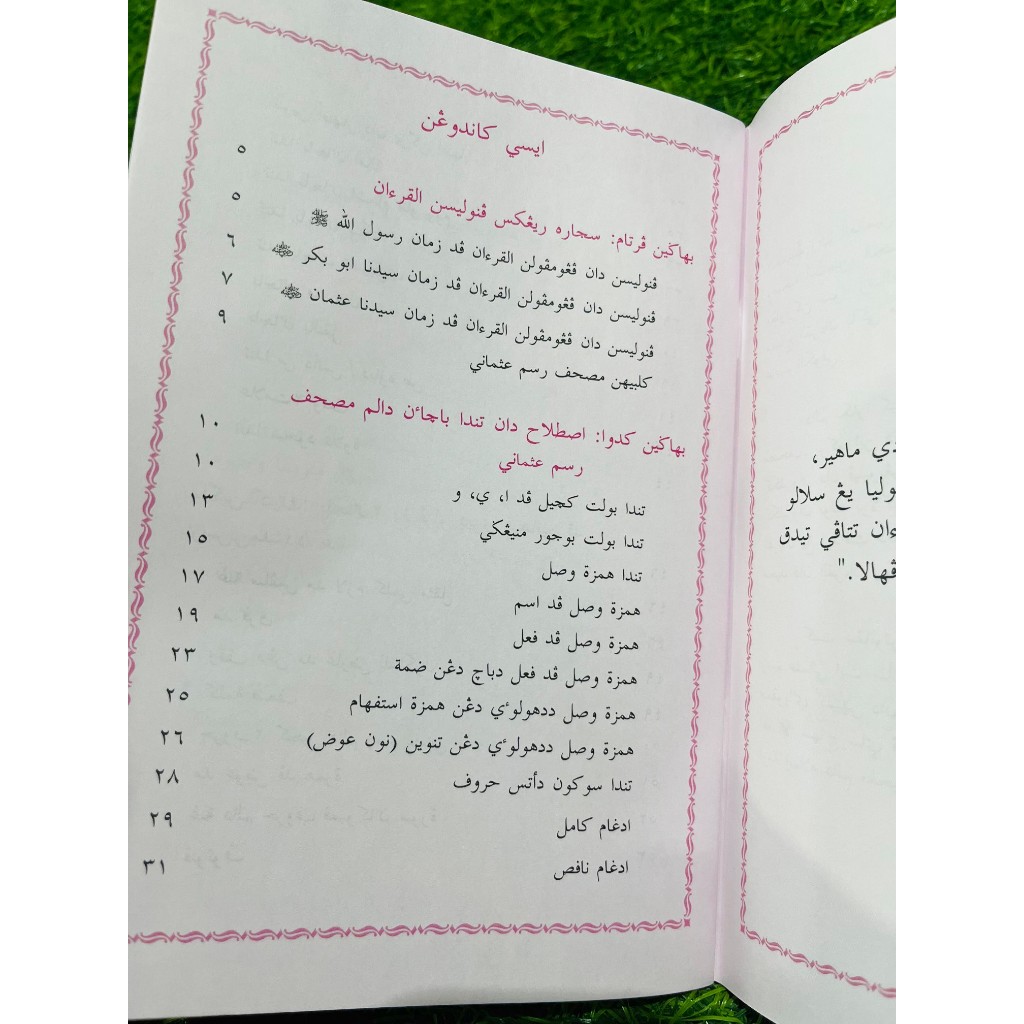 ايسي كاندوڠن
بهاڬين ڤرتام: سجاره ريڠكس ڤنوليسن القرءان ٥
ڤنوليسن دان ڤڠومڤولن القرءان ڤد زمان رسول الله ﷺ ٥
ڤنوليسن دان ڤڠومڤولن القرءان ڤد زمان سيدنا ابو بكر ٦
ڤنوليسن دان ڤڠومڤولن القرءان ڤد زمان سيدنا عثمان ٧
كلبيهن مصحف رسم عثماني ٩
بهاڬين كدوا: اصطلاح دان تندا باچاءن دالم مصحف
رسم عثماني ١٠
تندا بولت كچيل ڤد ا، ي، و ١٠
تندا بولت بوجور منيڠڬي ١٣
تندا همزة وصل ١٥
همزة وصل ڤد اسم ١٧
همزة وصل ڤد فعل ١٩
همزة وصل ڤد فعل دباچ دڠن ضمة ٢٣
همزة وصل ددهولوءي دڠن همزة استفهام ٢٥
همزة وصل ددهولوءي دڠن تنوين (نون عوض) ٢٦
تندا سوكون دأتس حروف ٢٨
ادغام كامل ٢٩
ادغام ناقص ٣١
ماهير،
يڠ سلالو
تتاڤي تيدق